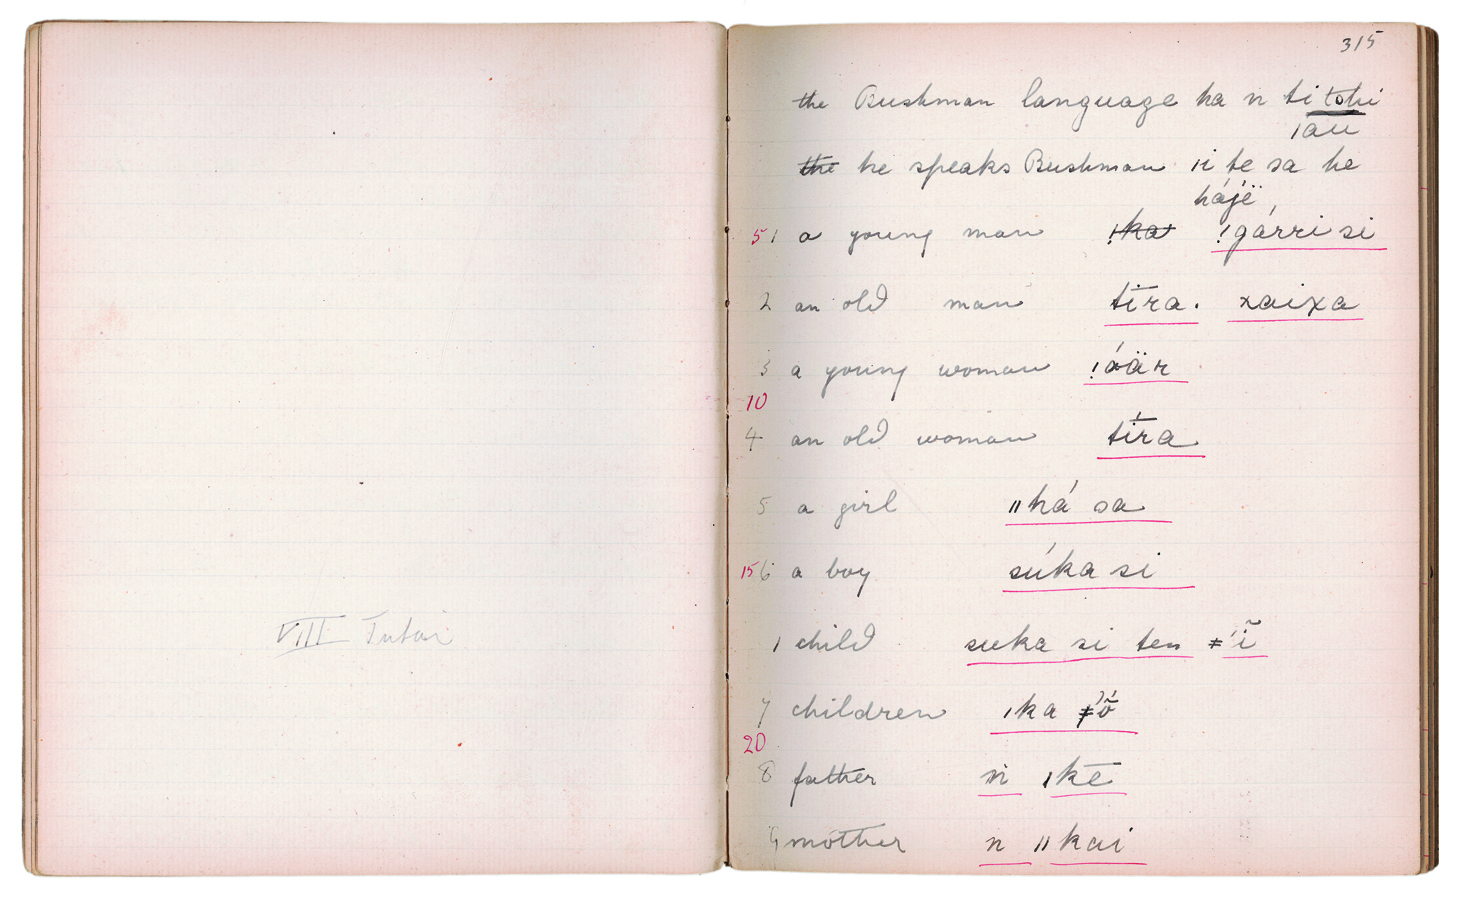 VIII Tutai
315
the Bushman language ha n ti tohi
ǀau
the he speaks Bushman ǀi te sa he
hájë
51 a young man ǃka ǃgárri si
2 an old man tīra. xaixa
3 a young woman ǃóär
10
4 an old woman tī́ra
5 a girl ǁhá sa
15 6 a boy súka si
1 child suka si ten ǂ'ĩ
7 children ǀka ǂ'ṍ
20
8 father n ǀkē
9 mother n ǁkai